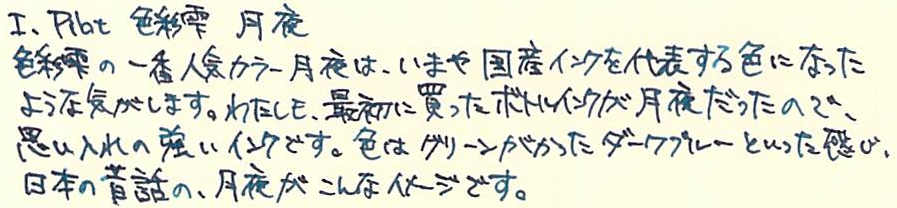 I. Pilot 色彩雫 月夜
色彩雫の一番人気カラー月夜は、いまや国産インクを代表する色になった
ような気がします。わたしも、最初に買ったボトルインクが月夜だったので、
思い入れの強いインクです。色はグリーンがかったダークブルーといった感じ、
日本の昔話の、月夜がこんなイメージです。